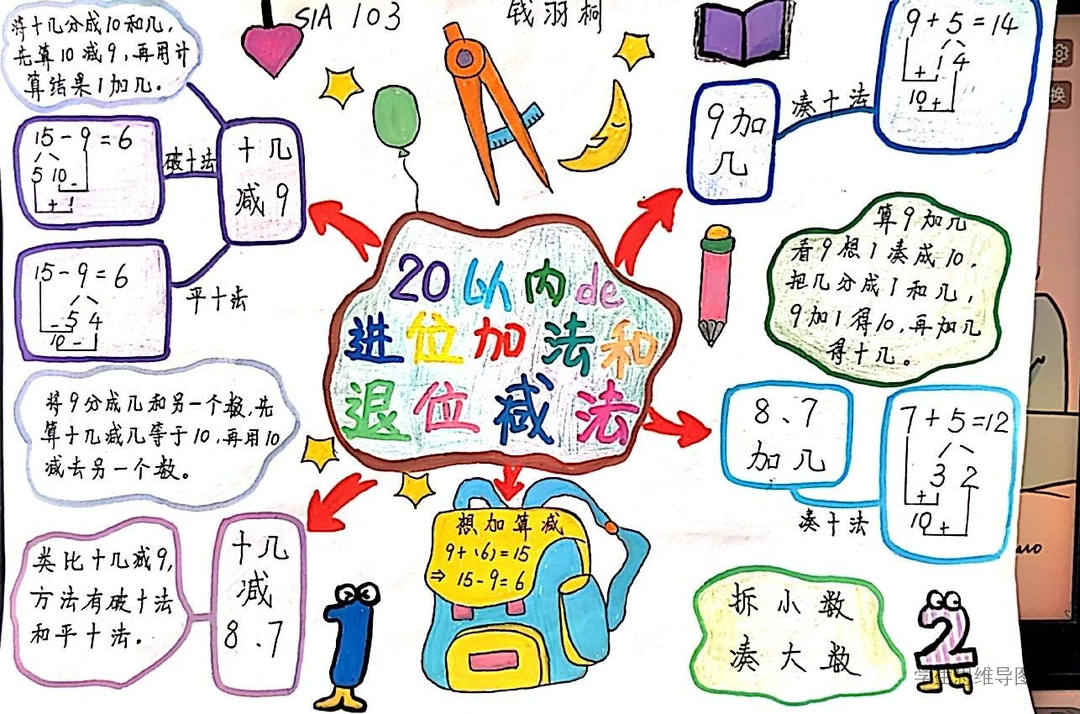 SIA 103 钱羽桐
将十几分成10和几,
先算10减9,再用计
算结果1加几。
15-9=6
5 10
-
+ 1
破十法
十几
减9
15-9=6
- 5 4
10 -
平十法
将9分成几和另一个数,先
算十几减几等于10,再用10
减去另一个数。
类比十几减9,
方法有破十法
和平十法。
十几
减
8、7
20以内de
进位加法和
退位减法
想加算减
9+(6)=15
⇒ 15-9=6
1
9加
几
凑十法
9+5=14
1 4
+
10 +
算9加几
看9想1凑成10,
把几分成1和几,
9加1得10,再加几
得十几。
8、7
加几
凑十法
7+5=12
3 2
+
10 +
拆小数
凑大数
2
学生思维导图
换